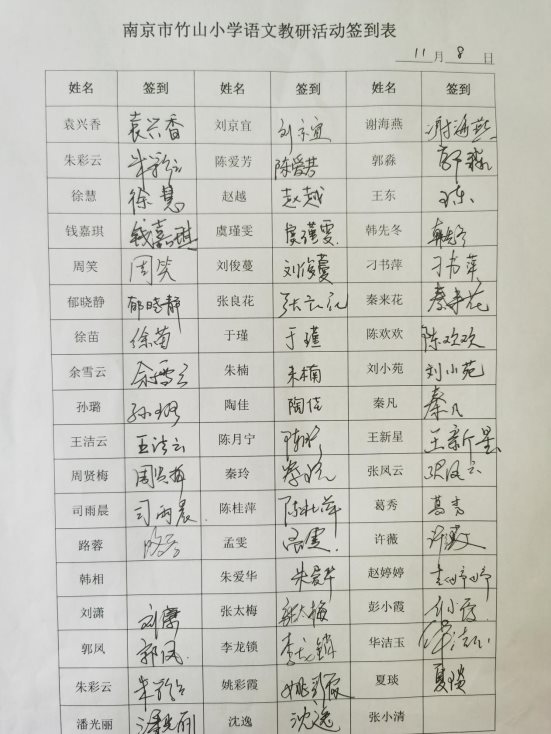 南京市竹山小学语文教研活动签到表
11月8日
姓名 签到 姓名 签到 姓名 签到
袁兴香 袁兴香 刘京宜 刘京宜 谢海燕 谢海燕
朱彩云 朱彩云 陈爱芳 陈爱芳 郭淼 郭淼
徐慧 徐慧 赵越 赵越 王东 王东
钱嘉琪 钱嘉琪 虞瑾雯 虞瑾雯 韩先冬 韩先冬
周笑 周笑 刘俊蔓 刘俊蔓 刁书萍 刁书萍
郁晓静 郁晓静 张良花 张良花 秦来花 秦来花
徐苗 徐苗 于瑾 于瑾 陈欢欢 陈欢欢
余雪云 余雪云 朱楠 朱楠 刘小苑 刘小苑
孙璐 孙璐 陶佳 陶佳 秦凡 秦凡
王洁云 王洁云 陈月宁 王新星 王新星
周贤梅 周贤梅 秦玲 秦玲 张凤云 张凤云
司雨晨 司雨晨 陈桂萍 陈桂萍 葛秀 葛秀
路蓉 路蓉 孟雯 许薇 许薇
韩相 朱爱华 朱爱华 赵婷婷 赵婷婷
刘潇 张太梅 张太梅 彭小霞
郭凤 郭凤 李龙锁 李龙锁 华洁玉 华洁玉
朱彩云 朱彩云 姚彩霞 姚彩霞 夏琰 夏琰
潘光丽 潘光丽 沈逸 沈逸 张小清